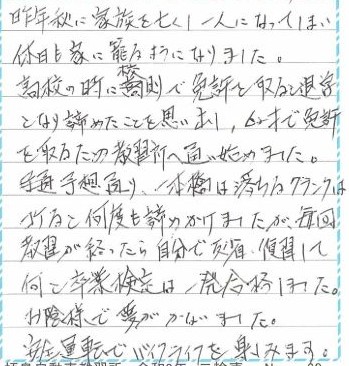 昨年秋に家族を亡くし一人になってしまい
休日も家に籠るようになりました。
高校の時に校則で免許を取ると退学
となり諦めたことを思い出し、62才で免許
を取るため教習所へ通い始めました。
予想通り、一本橋は落ちるクランクは
こと何度も諦めかけましたが、毎回
教習が終ったら自分で反省、復習して
何とか卒業検定は一発合格しました。
お陰様で夢がかないました。
安全運転でバイクライフを楽しみます。